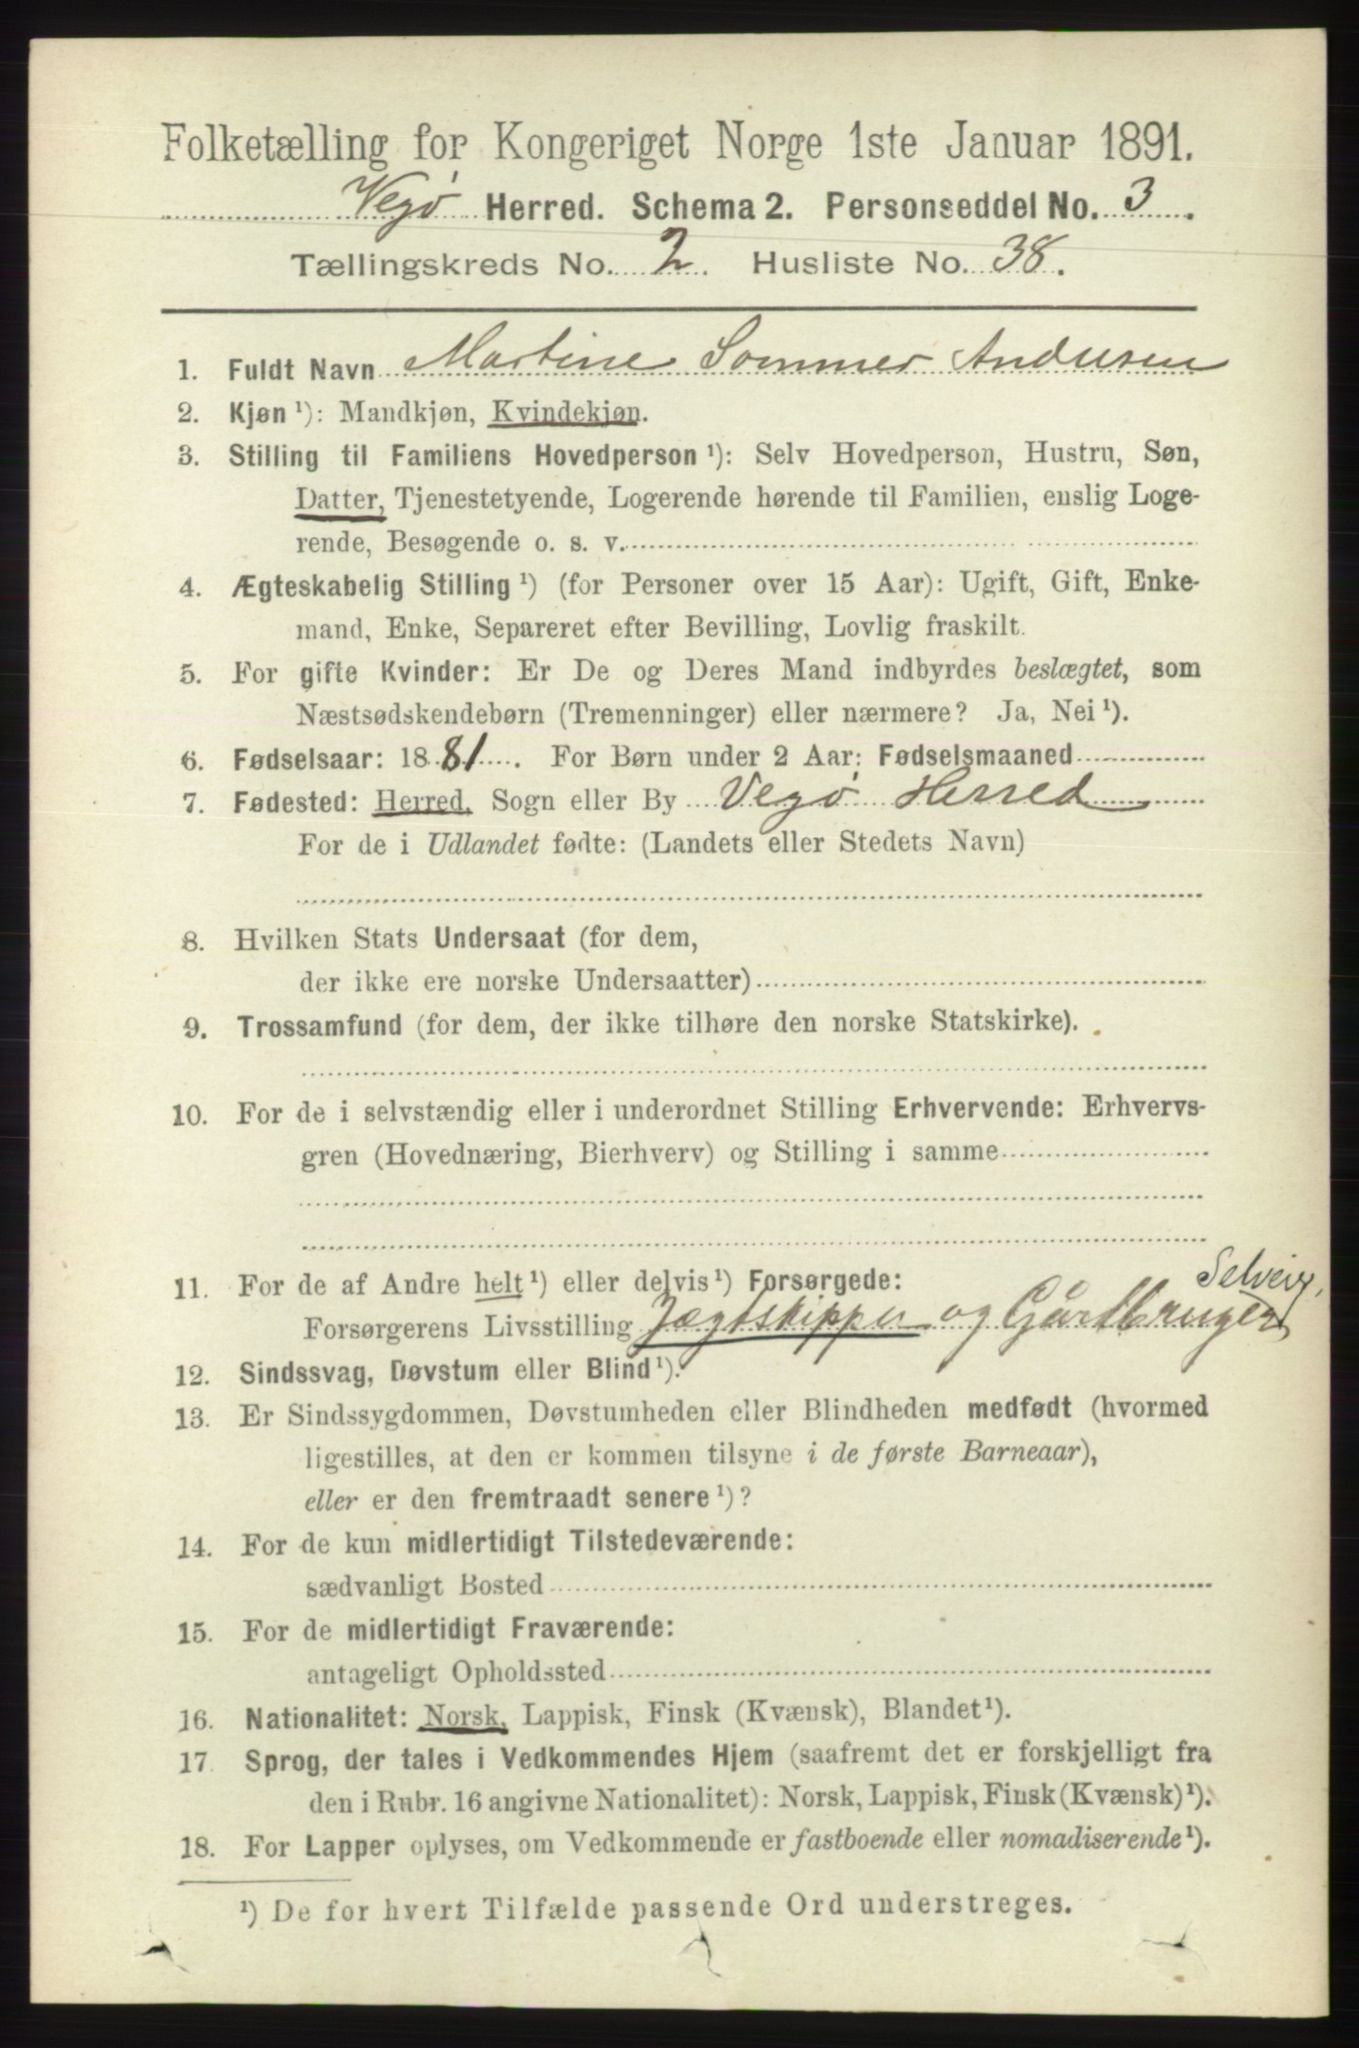 Folketælling for Kongeriget Norge 1ste Januar 1891.
Vegø Herred. Schema 2. Personseddel No. 3.
Tællingskreds No. 2. Husliste No. 38.
1. Fuldt Navn Martine Sommer Andersen
2. Kjøn ¹): Mandkjøn, Kvindekjøn.
3. Stilling til Familiens Hovedperson ¹): Selv Hovedperson, Hustru, Søn,
Datter, Tjenestetyende, Logerende hørende til Familien, enslig Loge-
rende, Besøgende o. s. v.
4. Ægteskabelig Stilling ¹) (for Personer over 15 Aar): Ugift, Gift, Enke-
mand, Enke, Separeret efter Bevilling, Lovlig fraskilt.
5. For gifte Kvinder: Er De og Deres Mand indbyrdes beslægtet, som
Næstsødskendebørn (Tremenninger) eller nærmere? Ja, Nei ¹).
6. Fødselsaar: 1881. For Børn under 2 Aar: Fødselsmaaned
7. Fødested: Herred, Sogn eller By Vegø Herred
For de i Udlandet fødte: (Landets eller Stedets Navn)
8. Hvilken Stats Undersaat (for dem,
der ikke ere norske Undersaatter)
9. Trossamfund (for dem, der ikke tilhøre den norske Statskirke).
10. For de i selvstændig eller i underordnet Stilling Erhvervende: Erhvervs-
gren (Hovednæring, Bierhverv) og Stilling i samme
11. For de af Andre helt ¹) eller delvis ¹) Forsørgede: Selveier,
Forsørgerens Livsstilling Jægtskipper og Gårdbruger
12. Sindssvag, Døvstum eller Blind ¹).
13. Er Sindssygdommen, Døvstumheden eller Blindheden medfødt (hvormed
ligestilles, at den er kommen tilsyne i de første Barneaar),
eller er den fremtraadt senere ¹)?
14. For de kun midlertidigt Tilstedeværende:
sædvanligt Bosted
15. For de midlertidigt Fraværende:
antageligt Opholdssted
16. Nationalitet: Norsk, Lappisk, Finsk (Kvænsk), Blandet ¹).
17. Sprog, der tales i Vedkommendes Hjem (saafremt det er forskjelligt fra
den i Rubr. 16 angivne Nationalitet): Norsk, Lappisk, Finsk (Kvænsk) ¹).
18. For Lapper oplyses, om Vedkommende er fastboende eller nomadiserende ¹).
¹) De for hvert Tilfælde passende Ord understreges.